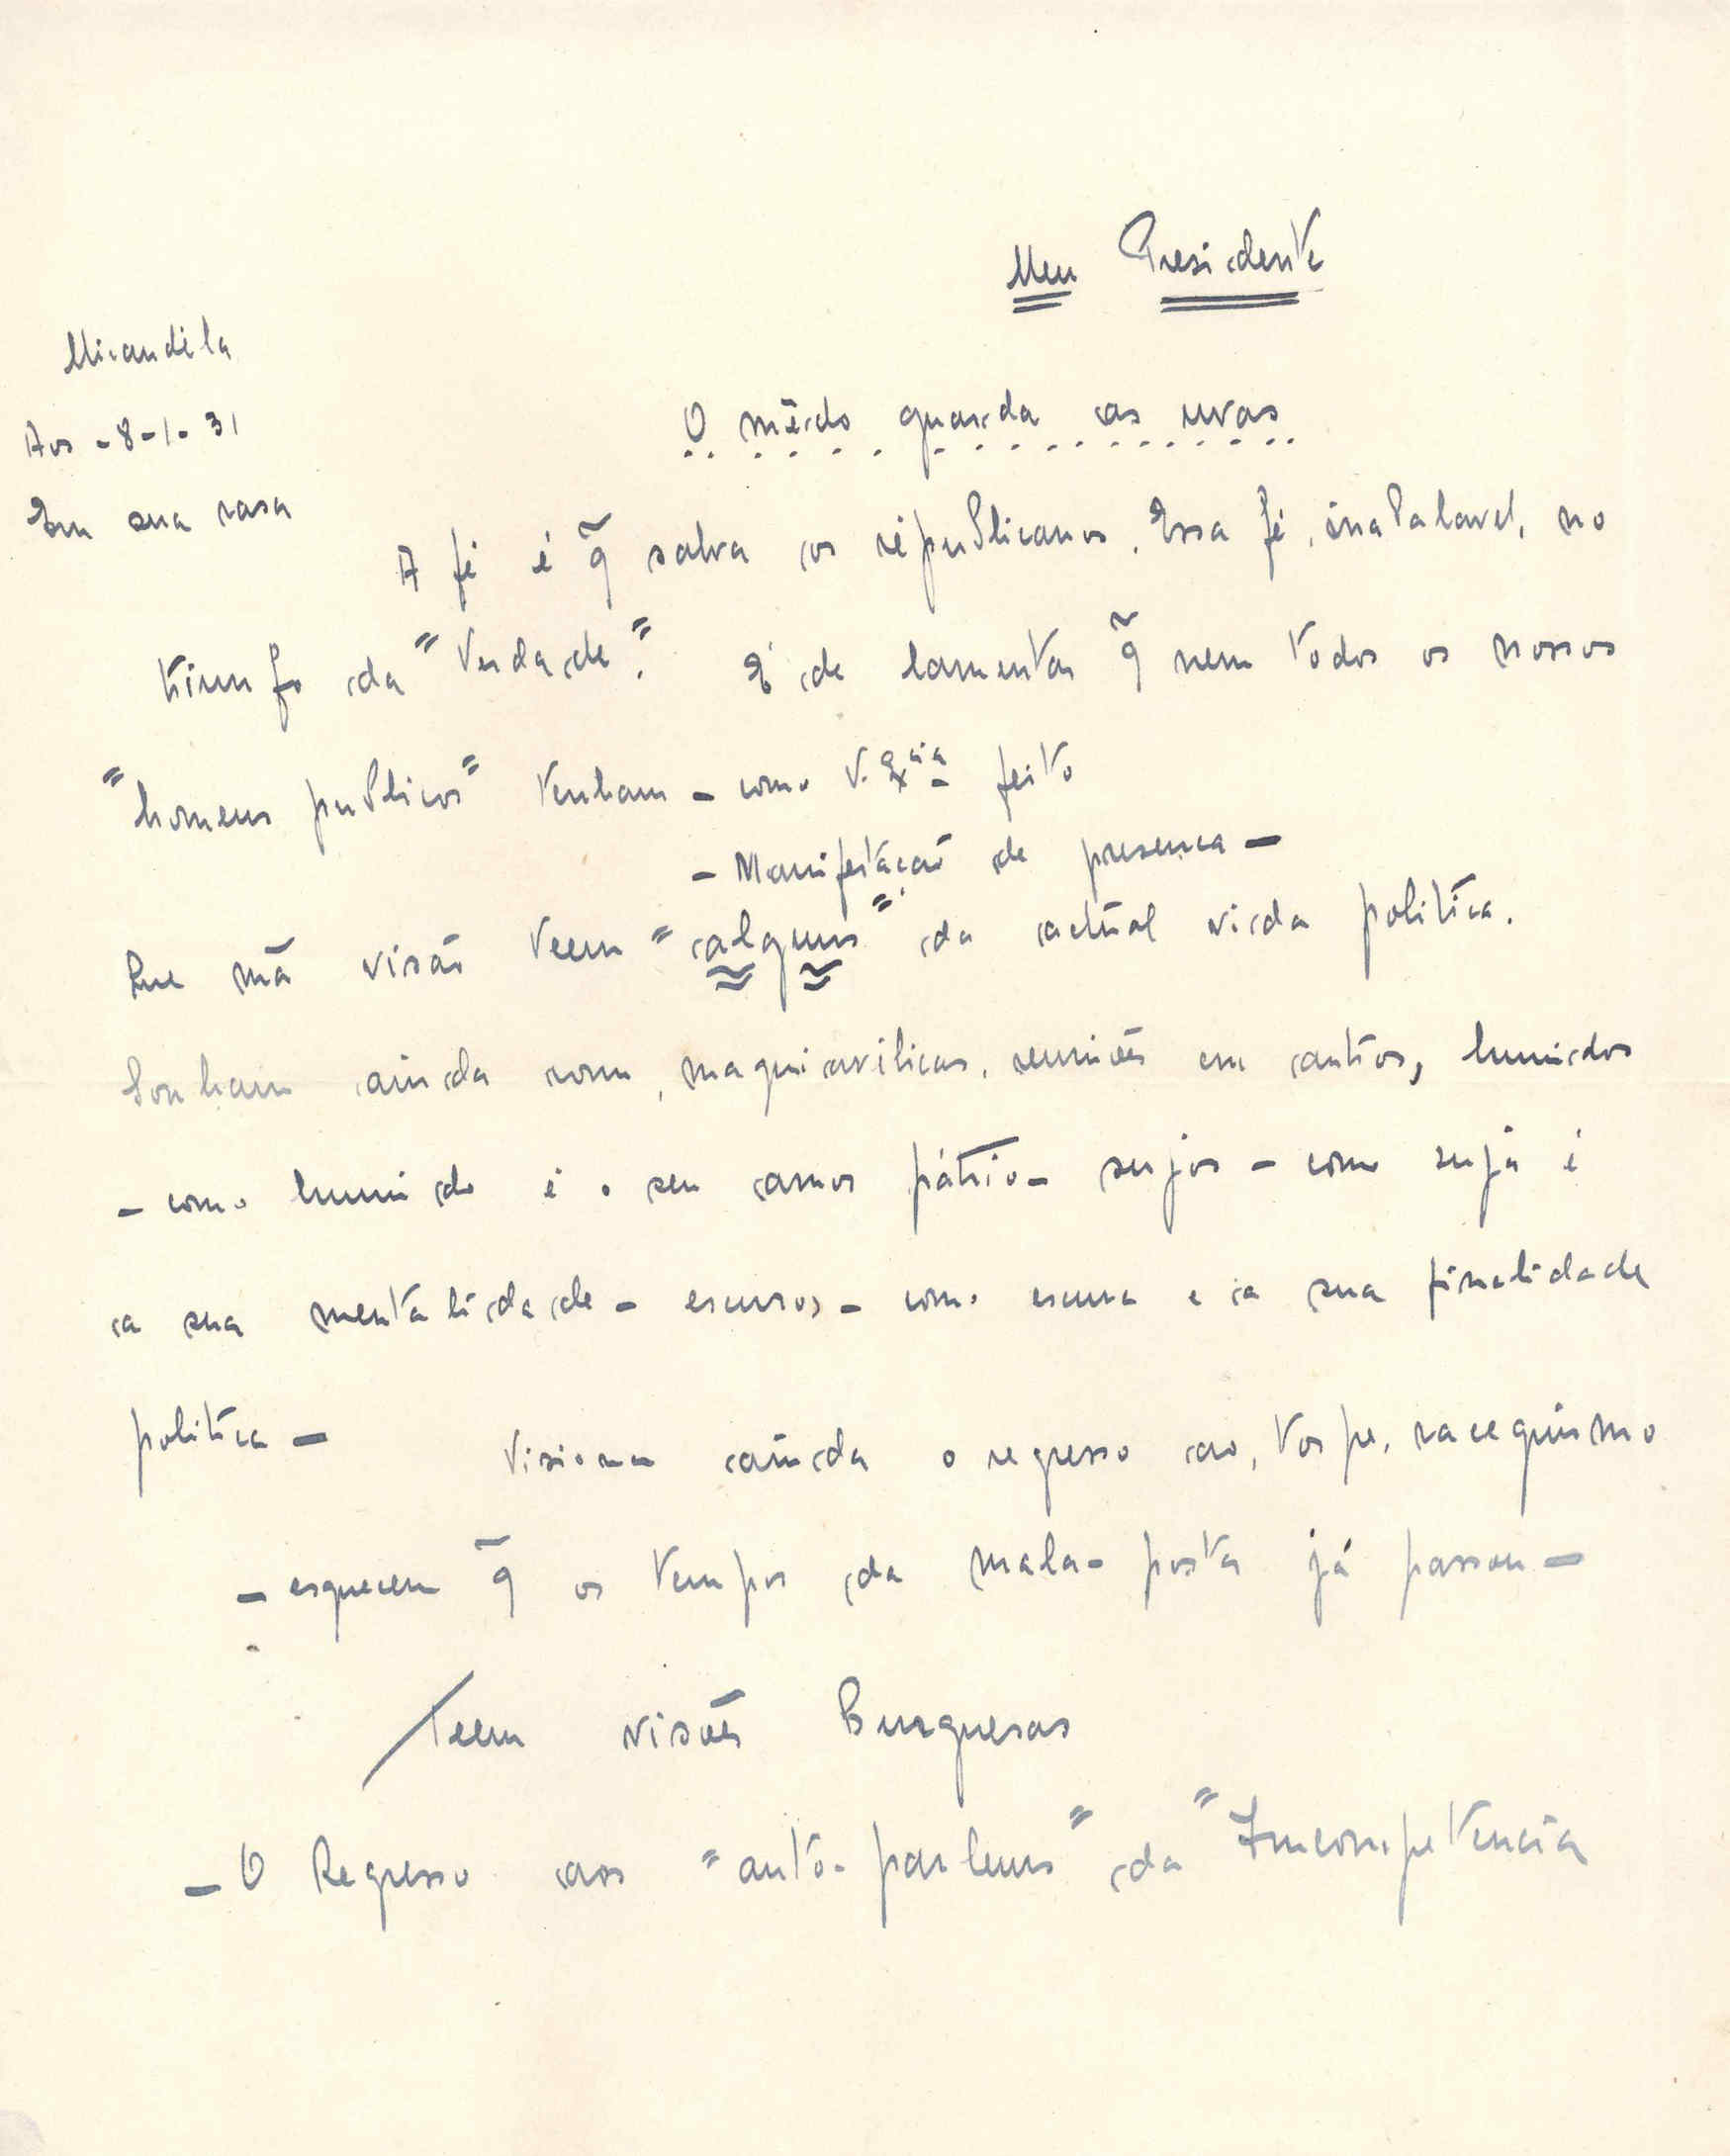 Meu Presidente
Mirandela
Aos - 8-1-31
Em sua casa
O mêdo guarda as uvas
A fé é q̃ salva os républicanos. Essa fé, inabalavel, no
triunfo da "Verdade". É de lamentar q̃ nem todos os nossos
"homens publicos" tenham - como V. Exᶜⁱᵃ feito
- Manifestação de presença -
Que má visão teem "alguns" da actual vida politica.
Sonham ainda com, maquiavélicas, reuniões em antros, humidos
- como humido é o seu amor pátrio - sujos - como suja é
a sua mentalidade - escuros - como escura e a sua finalidade
politica - Visionam ainda o regresso ao, torpe, cacequismo
- esquecem q̃ os tempos da mala-posta já passou -
Teem visões Burguesas
- O Regresso aos "autó-parleurs" da "Imcompetencia